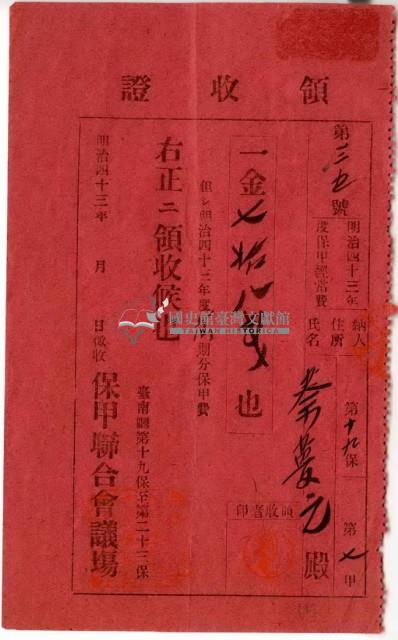 領收證
第三五號
明治四十三年
度保甲經常費
納人
住所
氏名
第十九保
第七甲
蔡　元殿
一金七拾八錢也
但シ明治四十三年度　期分保甲費
領收者印
右正ニ領收候也
明治四十三年　月　日徵收
臺南廳第十九保至第二十三保
保甲聯合會議場
國史館臺灣文獻館
TAIWAN HISTORICA